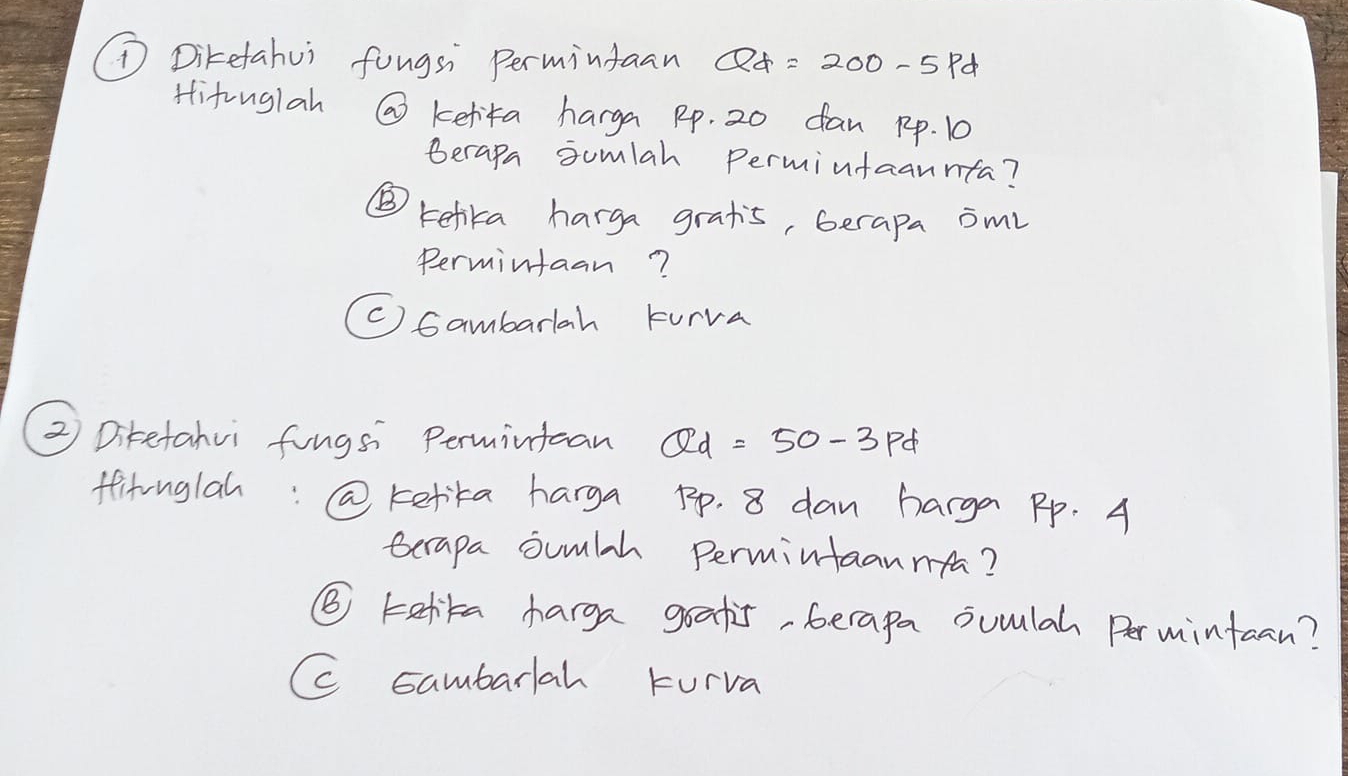 ① Diketahui fungsi Permintaan Qd = 200 - 5Pd
Hitunglah ⓐ ketika harga Rp. 20 dan Rp. 10
berapa Jumlah Permintaannya?
Ⓑ ketika harga gratis, berapa Jml
Permintaan ?
Ⓒ Gambarlah kurva
② Diketahui fungsi Permintaan Qd = 50 - 3Pd
Hitunglah : ⓐ ketika harga Rp. 8 dan harga Rp. 4
berapa Jumlah Permintaannya?
Ⓑ ketika harga gratis, berapa Jumlah Permintaan?
Ⓒ Gambarlah kurva